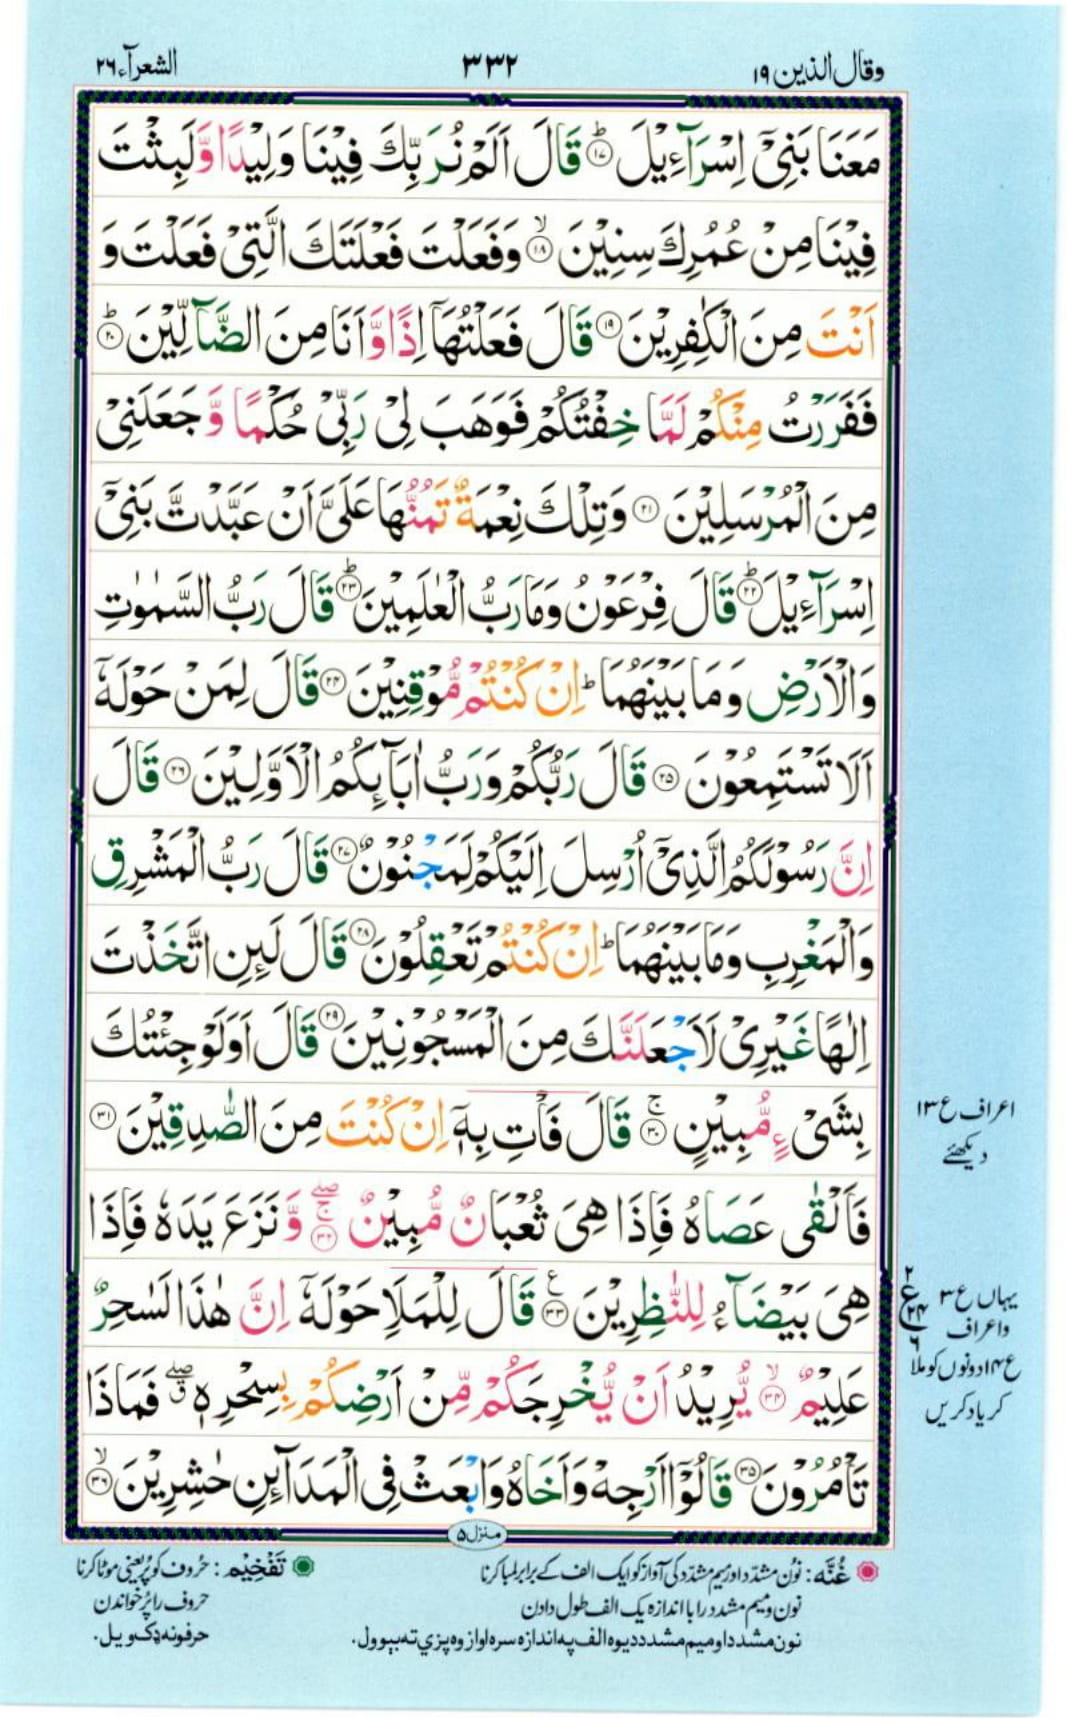 وقال الذین ۱۹
۳۳۲
الشعرآء ۲۶
مَعَنَا بَنِیْۤ اِسْرَآءِیْلَ ؕ۝۱۷ قَالَ اَلَمْ نُرَبِّكَ فِیْنَا وَلِیْدًا وَّلَبِثْتَ
فِیْنَا مِنْ عُمُرِكَ سِنِیْنَ ۙ۝۱۸ وَفَعَلْتَ فَعْلَتَكَ الَّتِیْ فَعَلْتَ وَ
اَنْتَ مِنَ الْكٰفِرِیْنَ ۝۱۹ قَالَ فَعَلْتُهَاۤ اِذًا وَّاَنَا مِنَ الضَّآلِّیْنَ ؕ۝۲۰
فَفَرَرْتُ مِنْكُمْ لَمَّا خِفْتُكُمْ فَوَهَبَ لِیْ رَبِّیْ حُكْمًا وَّ جَعَلَنِیْ
مِنَ الْمُرْسَلِیْنَ ۝۲۱ وَتِلْكَ نِعْمَةٌ تَمُنُّهَا عَلَیَّ اَنْ عَبَّدْتَّ بَنِیْۤ
اِسْرَآءِیْلَ ؕ۝۲۲ قَالَ فِرْعَوْنُ وَمَا رَبُّ الْعٰلَمِیْنَ ؕ۝۲۳ قَالَ رَبُّ السَّمٰوٰتِ
وَالْاَرْضِ وَمَا بَیْنَهُمَا ؕ اِنْ كُنْتُمْ مُّوْقِنِیْنَ ۝۲۴ قَالَ لِمَنْ حَوْلَهٗۤ
اَلَا تَسْتَمِعُوْنَ ۝۲۵ قَالَ رَبُّكُمْ وَرَبُّ اٰبَآىِٕكُمُ الْاَوَّلِیْنَ ۝۲۶ قَالَ
اِنَّ رَسُوْلَكُمُ الَّذِیْۤ اُرْسِلَ اِلَیْكُمْ لَمَجْنُوْنٌ ۝۲۷ قَالَ رَبُّ الْمَشْرِقِ
وَالْمَغْرِبِ وَمَا بَیْنَهُمَا ؕ اِنْ كُنْتُمْ تَعْقِلُوْنَ ۝۲۸ قَالَ لَىِٕنِ اتَّخَذْتَ
اِلٰهًا غَیْرِیْ لَاَجْعَلَنَّكَ مِنَ الْمَسْجُوْنِیْنَ ۝۲۹ قَالَ اَوَلَوْ جِئْتُكَ
بِشَیْءٍ مُّبِیْنٍ ۚ۝۳۰ قَالَ فَاْتِ بِهٖۤ اِنْ كُنْتَ مِنَ الصّٰدِقِیْنَ ۝۳۱
فَاَلْقٰی عَصَاهُ فَاِذَا هِیَ ثُعْبَانٌ مُّبِیْنٌ ۚۖ۝۳۲ وَّ نَزَعَ یَدَهٗ فَاِذَا
هِیَ بَیْضَآءُ لِلنّٰظِرِیْنَ ۝۳۳ ع قَالَ لِلْمَلَاِ حَوْلَهٗۤ اِنَّ هٰذَا لَسٰحِرٌ
عَلِیْمٌ ۙ۝۳۴ یُّرِیْدُ اَنْ یُّخْرِجَكُمْ مِّنْ اَرْضِكُمْ بِسِحْرِهٖ ۖۗ فَمَاذَا
تَاْمُرُوْنَ ۝۳۵ قَالُوْۤا اَرْجِهْ وَاَخَاهُ وَابْعَثْ فِی الْمَدَآىِٕنِ حٰشِرِیْنَ ۙ۝۳۶
اعراف ع ۱۳
دیکھئے
۲
ع
۲۴
۶
یہاں ع ۳
واعراف
ع ۱۴ دونوں کو ملا
کر یاد کریں
منزل ۵
غُنَّه : نوُن مشدّد اور میم مشدّد کی آواز کو ایک الف کے برابر لمبا کرنا
نون و میم مشدد را با اندازه یک الف طول دادن
نون مشدد او میم مشدد دیوه الف په اندازه سره اواز وه پزي ته بیوول.
تَفْخِیْم : حرُوف کو پُر یعنی موٹا کرنا
حروف را پرُ خواندن
حرفونه ډک ویل.